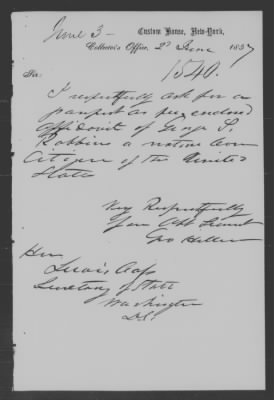 June 3 —
Custom House, New-York,
Collector's Office, 2d June 1857
1540.
Sir:
I respectfully ask for a
passport as per enclosed
affidavit of George S.
Robbins a native born
Citizen of the United
States
Very Respectfully
Your Obt Servant
Hon
Lewis Cass
Secretary of State
Washington
D.C.